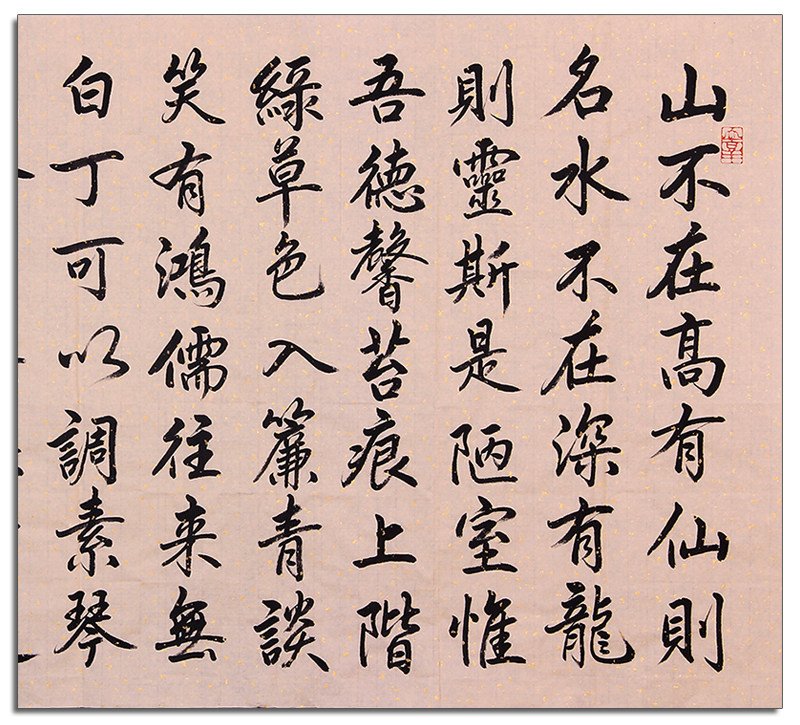 山不在高有仙則
名水不在深有龍
則靈斯是陋室惟
吾德馨苔痕上階
綠草色入簾青談
笑有鴻儒往来無
白丁可以調素琴